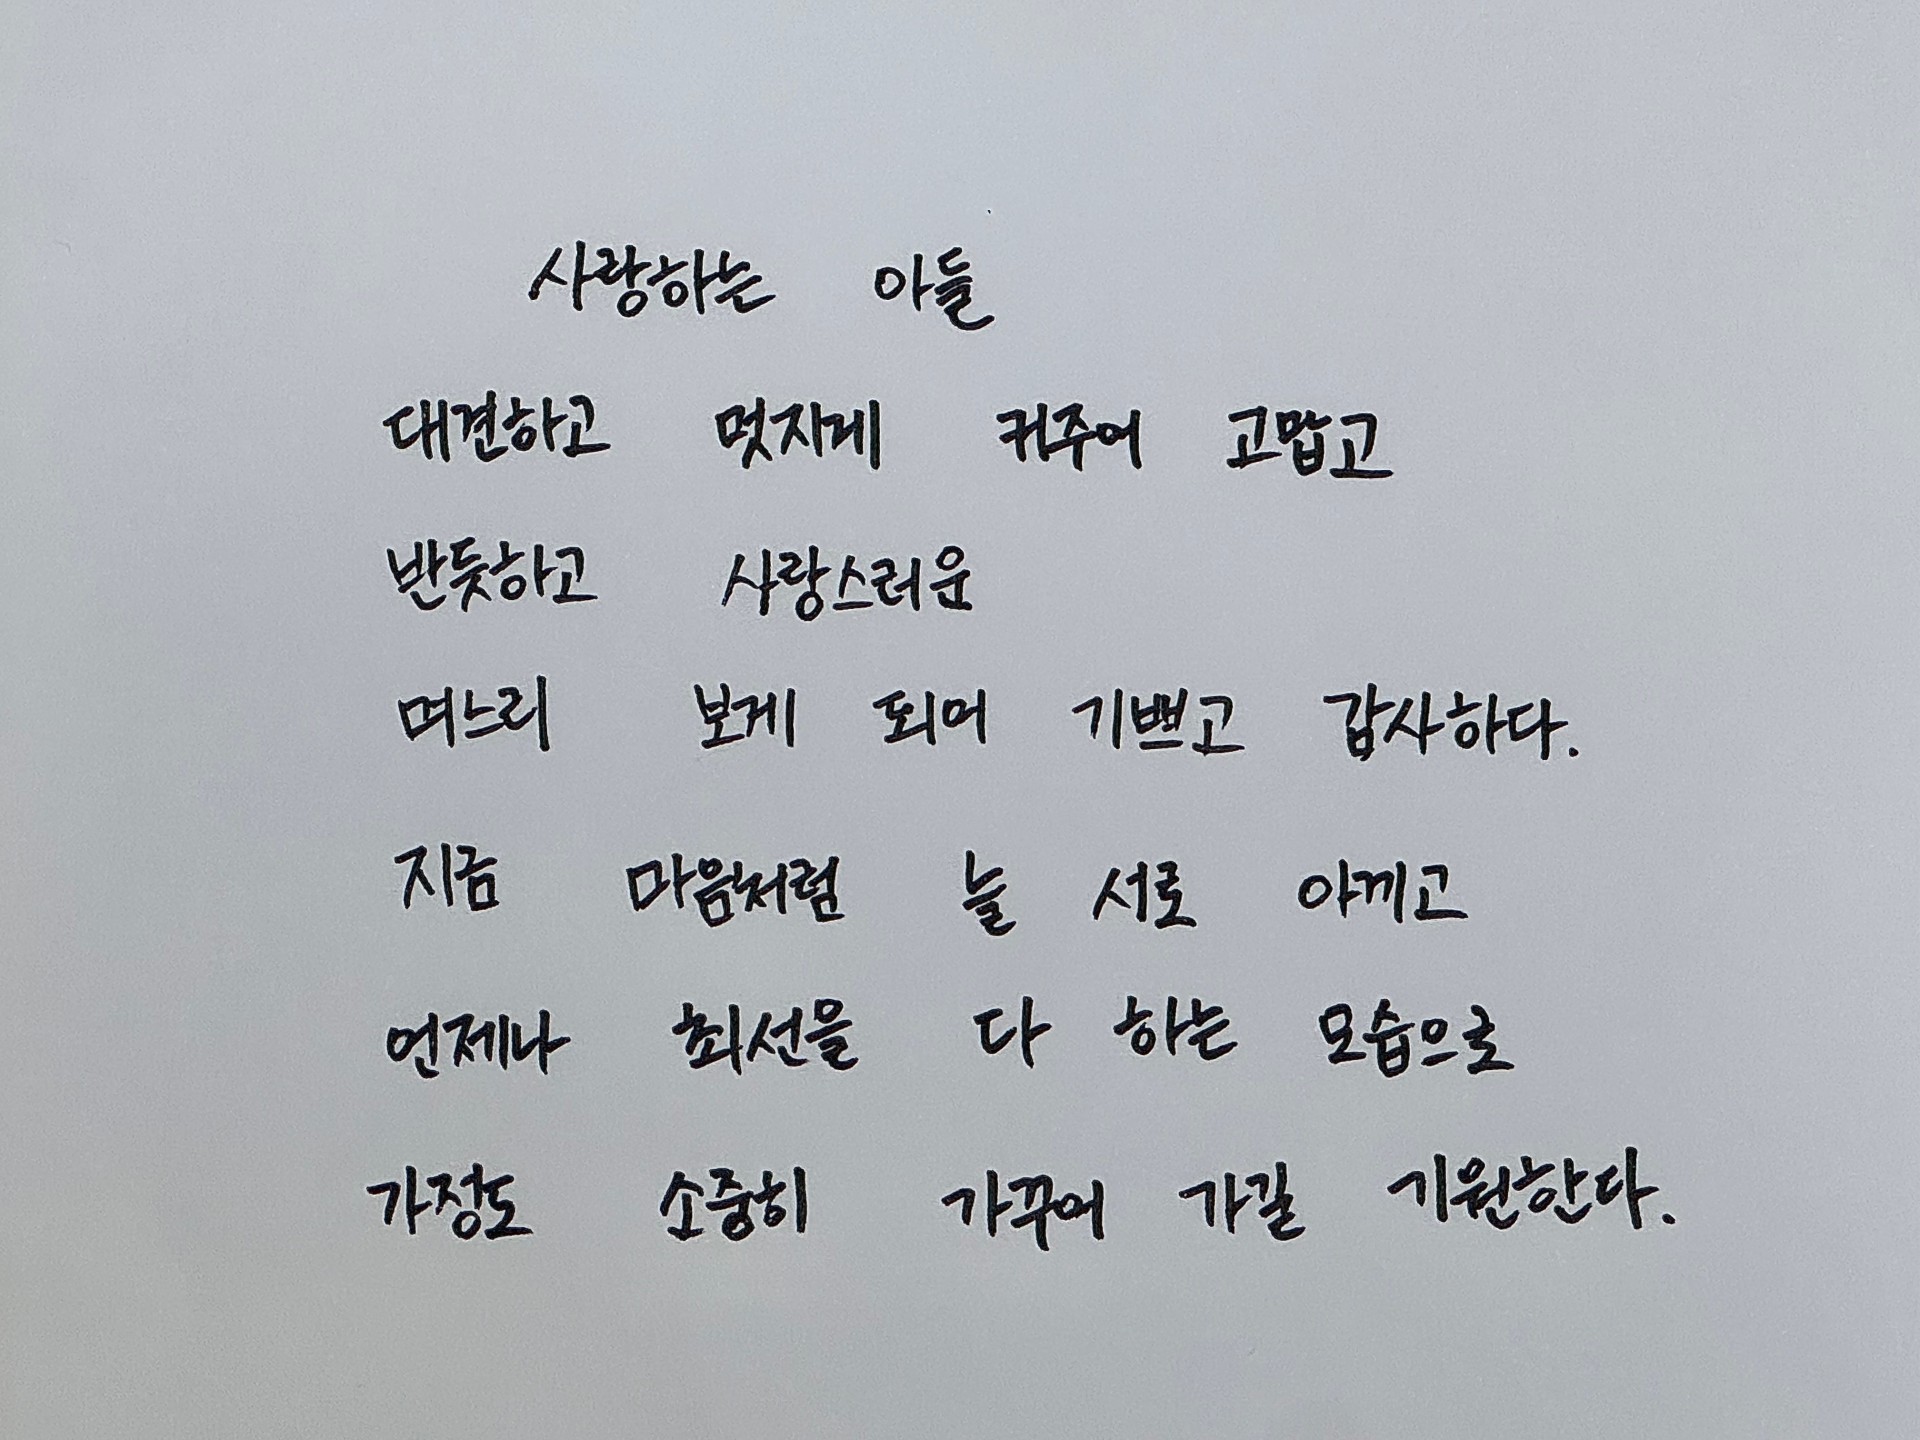 사랑하는 아들
대견하고 멋지게 커주어 고맙고
반듯하고 사랑스러운
며느리 보게 되어 기쁘고 감사하다.
지금 마음처럼 늘 서로 아끼고
언제나 최선을 다 하는 모습으로
가정도 소중히 가꾸어 가길 기원한다.